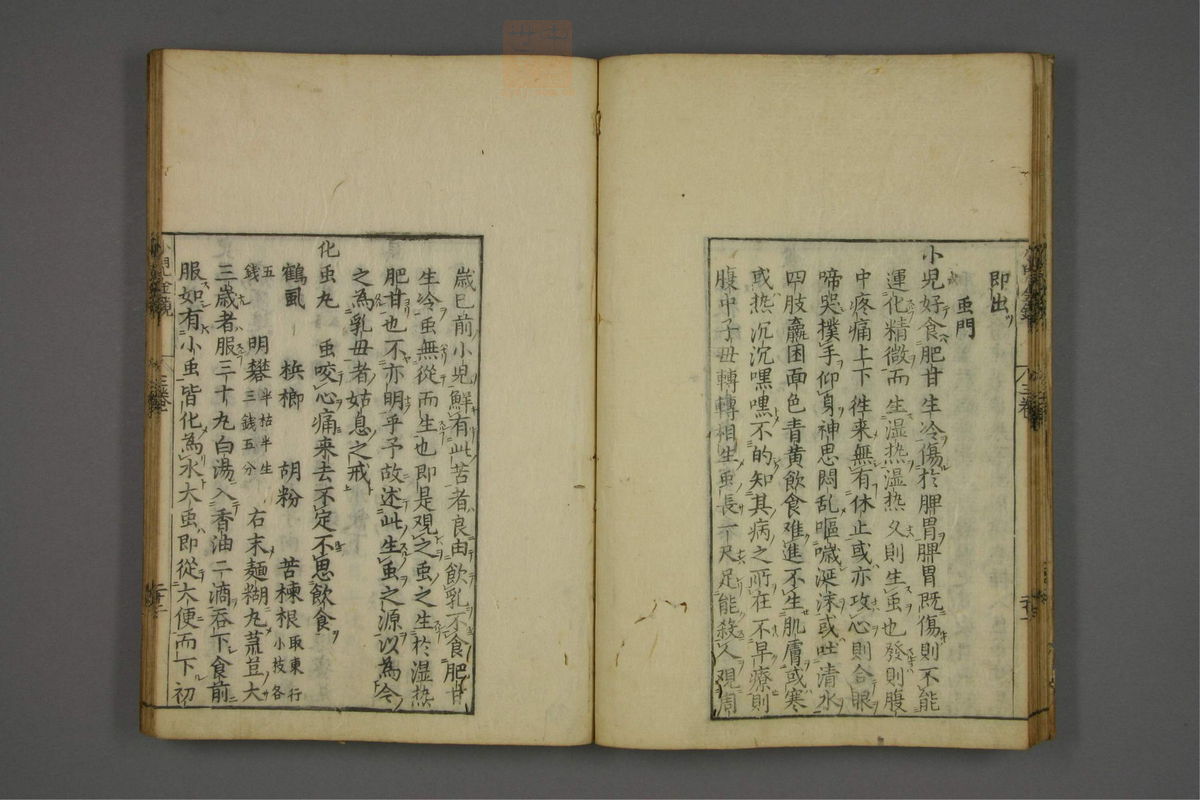 即出
虫門
小児好食肥甘生冷傷於脾胃脾胃既傷則不能
運化精微而生湿热湿热久則生虫也發則腹
中疼痛上下徃来無有休止或亦攻心則合眼
啼哭撲手仰身神思悶乱嘔噦涎沫或吐清水
四肢羸困面色青黄飲食难進不生肌膚或寒
或热沉沉嘿嘿不的知其病之所在不早療則
腹中子母轉轉相生虫長一尺足能殺人観周
歳已前小児鮮有此苦者良由飲乳不食肥甘
生冷虫無從而生也即是观之虫之生於湿热
肥甘也不亦明乎予故述此生虫之源以為今
之為乳母者姑息之戒
化虫丸 虫咬心痛来去不定不思飲食
鶴虱 梹榔 胡粉 苦楝根取東行小枝各
五錢 明礬三錢五分半枯半生 右末麺糊丸荒荳大
三歳者服三十丸白湯入香油一二滴吞下食前
服如有小虫皆化為水大虫即從大便而下初
三卷